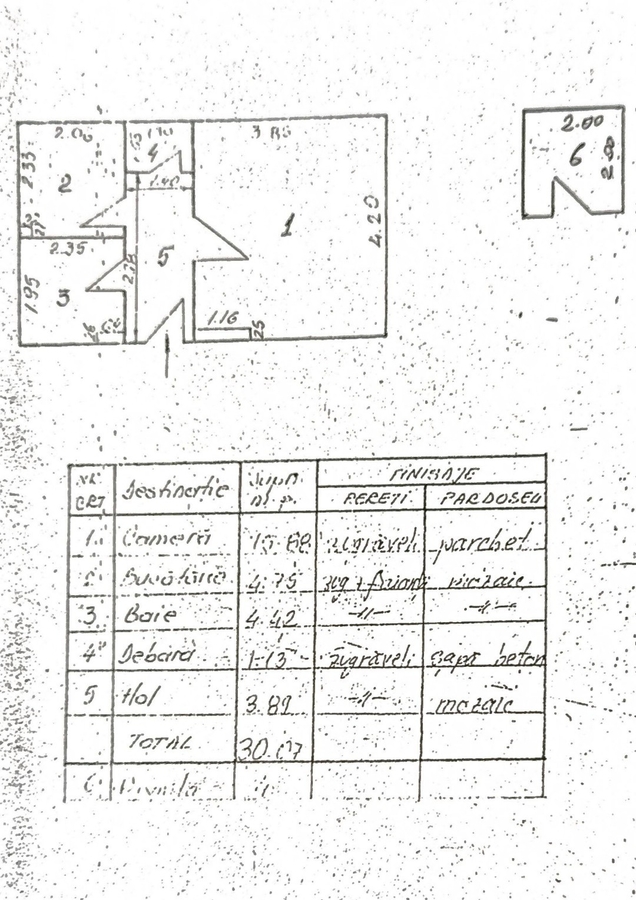 2.00
3.85
4
1.40
2.33
2
1
4.20
2.35
5
2.78
1.95
3
1.16
25
2.00
6
2.00
NR CRT Destinatie Supr. m.p. FINISAJE
PERETI PARDOSELI
1. Camera 15.88 zugraveli parchet
2 Bucatarie 4.75 zug + faianta mozaic
3 Baie 4.42 -//- -//-
4 Debara 1.13 zugraveli sapa beton
5 Hol 3.89 -//- mozaic
TOTAL 30.07
6